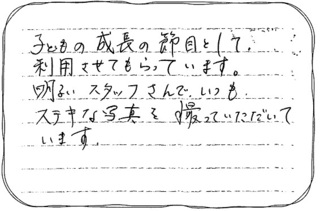 子どもの成長の節目として、
利用させてもらっています。
明るいスタッフさんで、いつも、
ステキな写真を撮っていただいて
います。